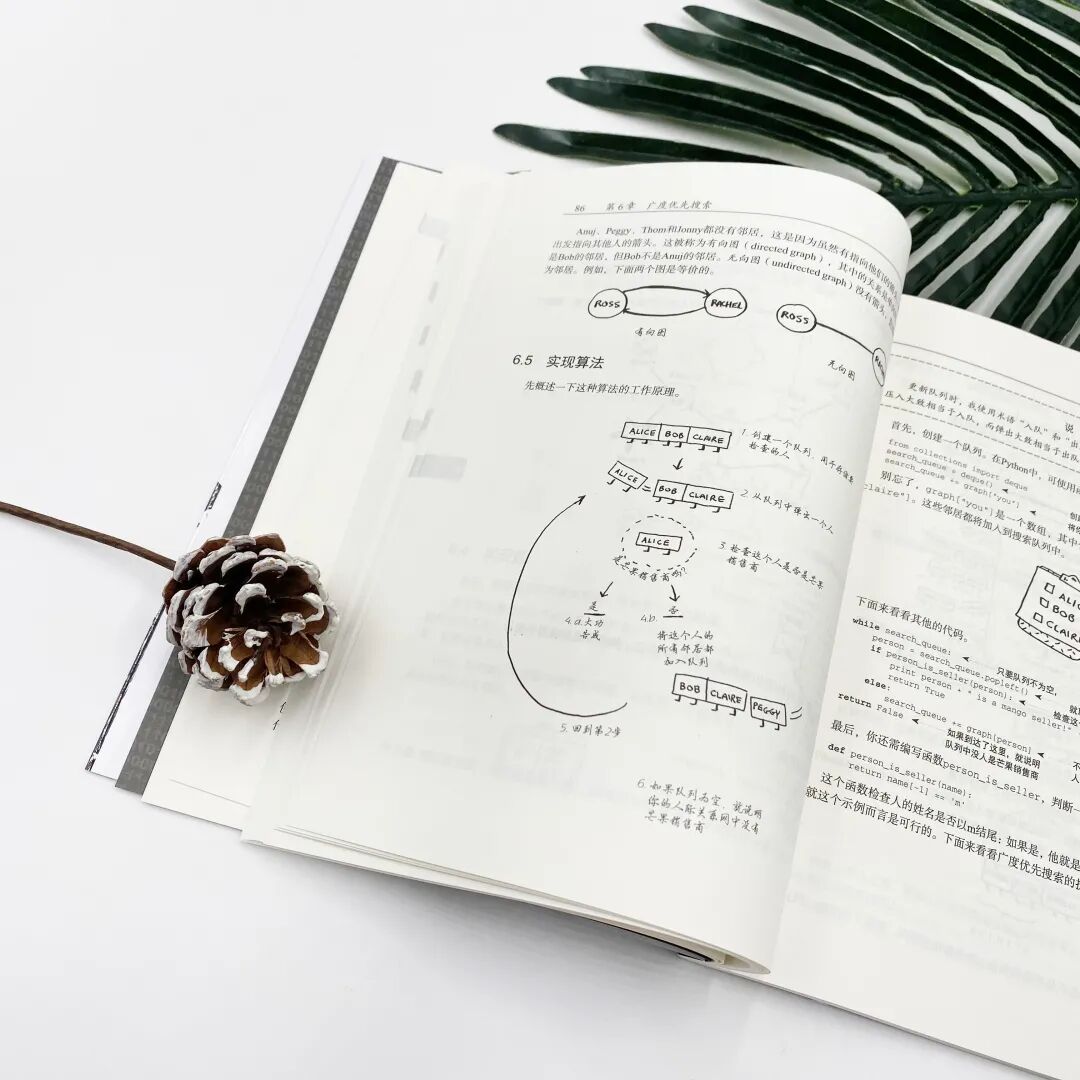 86 第6章 广度优先搜索
Anuj、Peggy、Thom和Jonny都没有邻居，这是因为虽然有指向他们的箭头
出发指向其他人的箭头。这被称为有向图（directed graph），其中的关系是单
是Bob的邻居，但Bob不是Anuj的邻居。无向图（undirected graph）没有箭头，
为邻居。例如，下面两个图是等价的。
ROSS
RACHEL
ROSS
有向图
无向图
6.5 实现算法
先概述一下这种算法的工作原理。
ALICE BOB CLAIRE
1. 创建一个队列，用于存储要
检查的人
ALICE
BOB CLAIRE
2. 从队列中弹出一个人
ALICE
3. 检查这个人是否是芒果
销售商
是芒果销售商吗？
是
否
4.a. 大功
告成
4.b.
将这个人的
所有邻居都
加入队列
BOB CLAIRE PEGGY
5. 回到第2步
6. 如果队列为空，就说明
你的人际关系网中没有
芒果销售商
更新队列时，我使用术语“入队”和“出
压入大致相当于入队，而弹出大致相当于出队
首先，创建一个队列。在Python中，可使用
from collections import deque
search_queue = deque()
search_queue += graph["you"]
别忘了，graph["you"]是一个数组，其中
claire"]。这些邻居都将加入到搜索队列中。
ALIC
BOB
CLAIR
下面来看看其他的代码。
while search_queue:
只要队列不为空，
person = search_queue.popleft()
if person_is_seller(person):
print person + " is a mango seller!"
return True
else:
search_queue += graph[person]
return False
如果到达了这里，就说明
队列中没人是芒果销售商
最后，你还需编写函数person_is_seller，判断一
def person_is_seller(name):
return name[-1] == 'm'
这个函数检查人的姓名是否以m结尾：如果是，他就是
就这个示例而言是可行的。下面来看看广度优先搜索的执